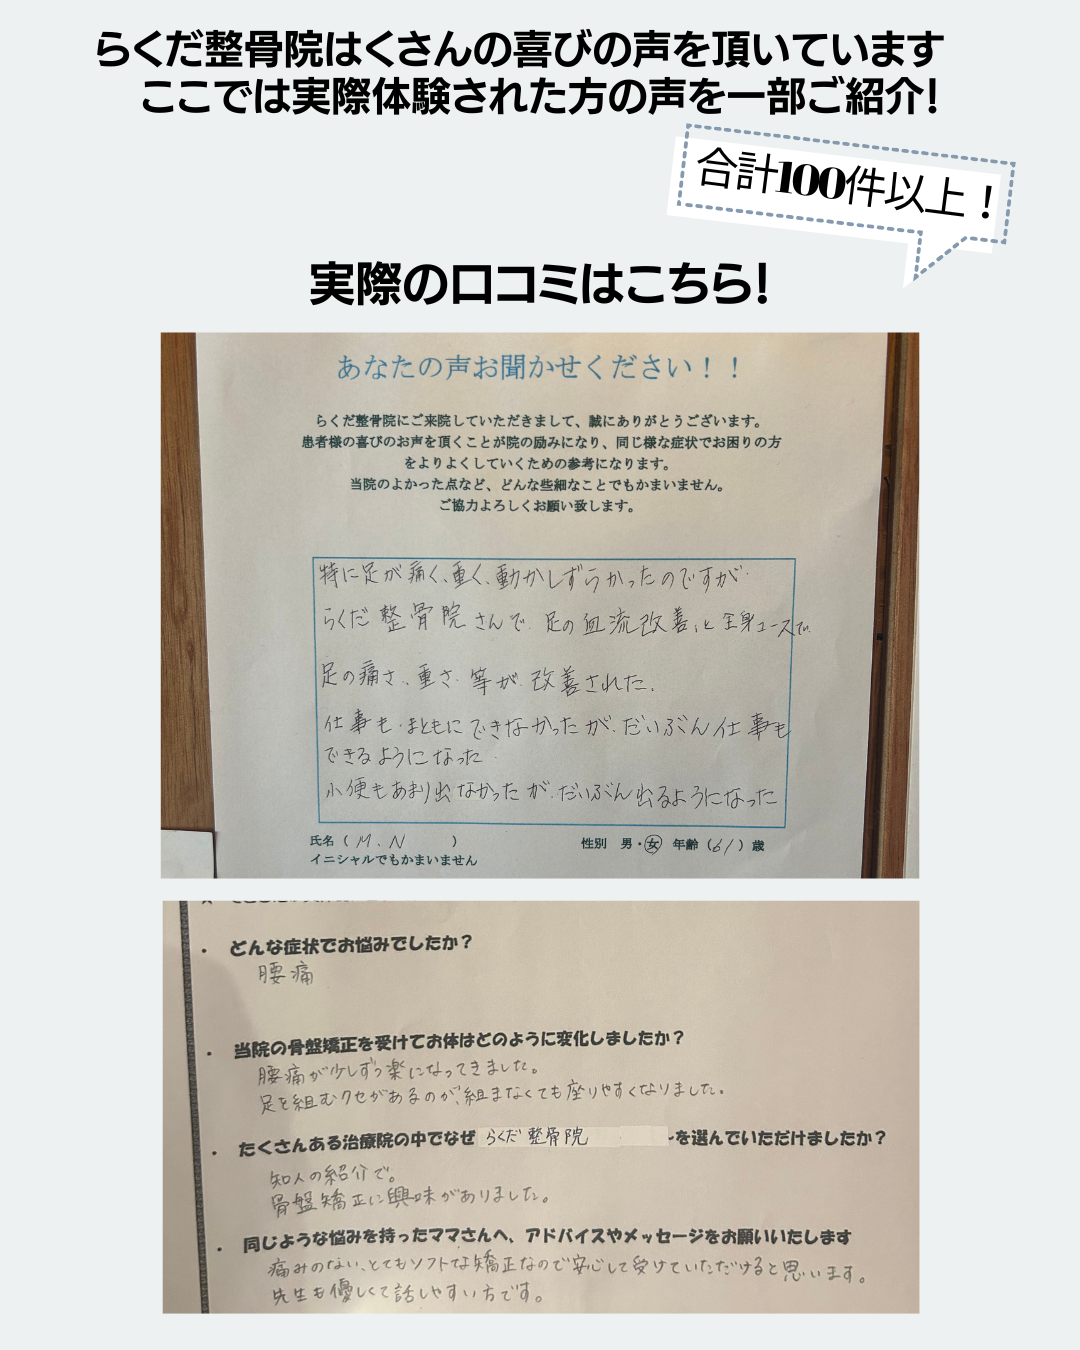 らくだ整骨院はくさんの喜びの声を頂いています
ここでは実際体験された方の声を一部ご紹介!
合計100件以上！
実際の口コミはこちら!
あなたの声お聞かせください！！
らくだ整骨院にご来院していただきまして、誠にありがとうございます。
患者様の喜びのお声を頂くことが院の励みになり、同じ様な症状でお困りの方
をよりよくしていくための参考になります。
当院のよかった点など、どんな些細なことでもかまいません。
ご協力よろしくお願い致します。
特に足が痛く、重く、動かしずらかったのですが
らくだ整骨院さんで 足の血流改善、と 全身コースで
足の痛さ、重さ 等が 改善された。
仕事も まともに できなかったが だいぶん仕事も
できるようになった
小便もあまり出なかったが だいぶん出るようになった
氏名（ M.N ） 性別 男・女 年齢（61）歳
イニシャルでもかまいません
・ どんな症状でお悩みでしたか？
腰痛
・ 当院の骨盤矯正を受けてお体はどのように変化しましたか？
腰痛が少しずつ楽になってきました。
足を組むクセがあるのが、組まなくても座りやすくなりました。
・ たくさんある治療院の中でなぜ らくだ整骨院 を選んでいただけましたか？
知人の紹介で。
骨盤矯正に興味がありました。
・ 同じような悩みを持ったママさんへ、アドバイスやメッセージをお願いいたします
痛みのない、とてもソフトな矯正なので安心して受けていただけると思います。
先生も優しくて話しやすい方です。